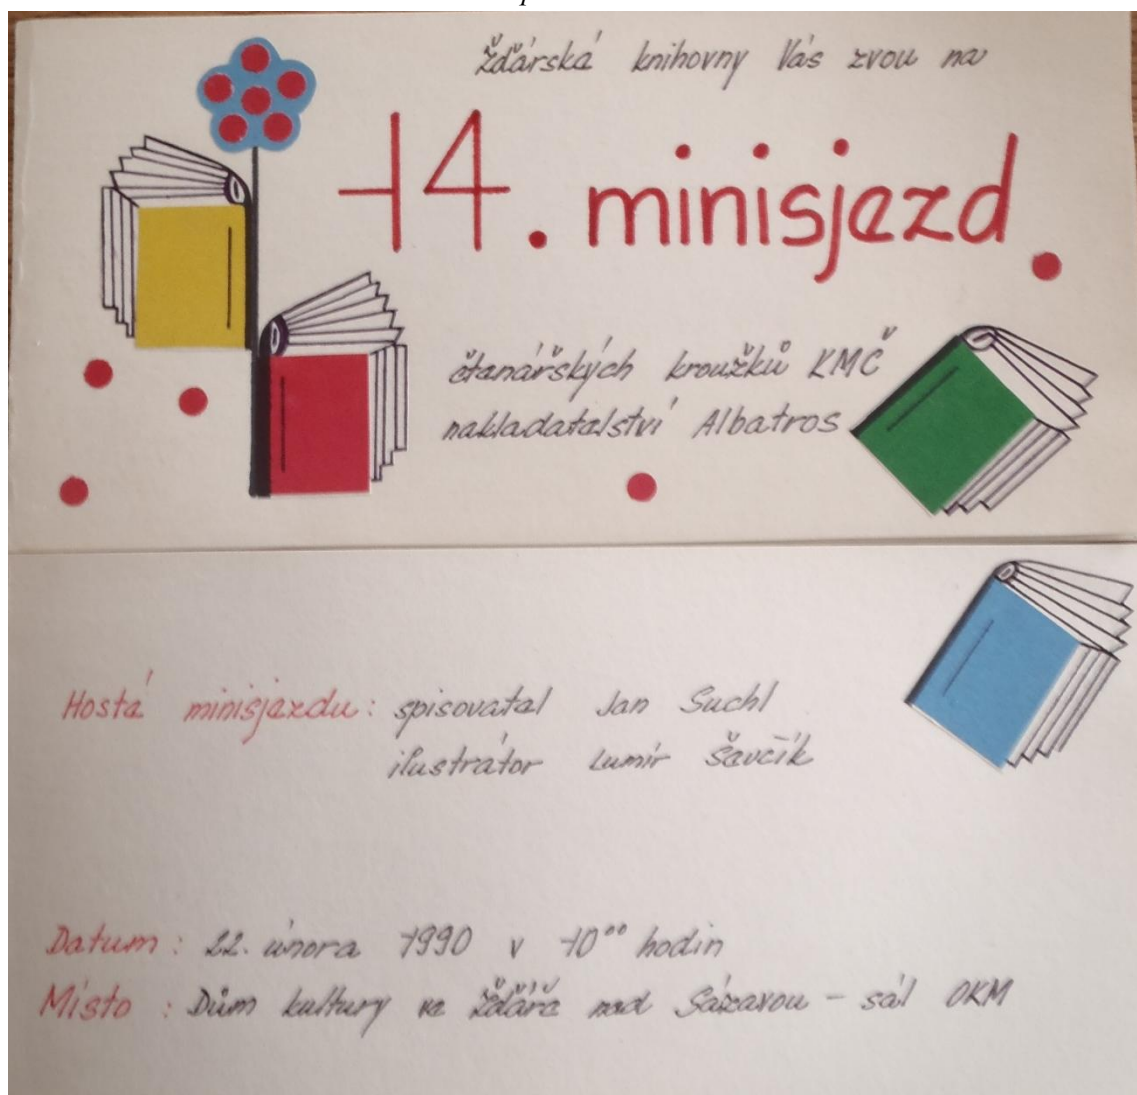 žďárské knihovny Vás zvou na
14. minisjezd
čtenářských kroužků KMČ
nakladatelství Albatros
Hosté minisjezdu: spisovatel Jan Suchl
ilustrátor Lumír Ševčík
Datum: 22. února 1990 v 10⁰⁰ hodin
Místo : Dům kultury ve Žďáře nad Sázavou - sál OKM